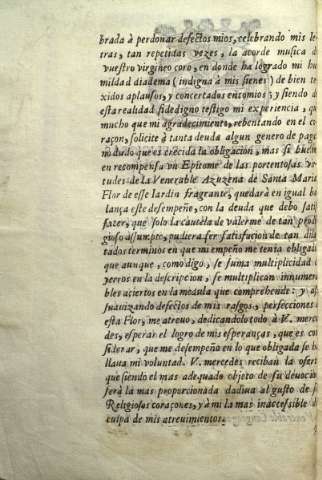 brada à perdonar defectos mios, celebrando mis le
tras, tan repetidas vezes, la acorde musica d
vuestro virgineo coro, en donde ha logrado mi hu
mildad diadema (indigna à mis sienes) de bien te
xidos aplausos, y concertados encomios; y siendo d
esta realidad fidedigno testigo mi experiencia, q
mucho que mi agradecimiento, rebentando en el co
raçon, solicite à tanta deuda algun genero de paga
no dudo que es crecida la obligacion, mas si busca
en recompensa vn Epitome de las portentosas vi
tudes de la Venerable Azuzena de Santa Maria
Flor de esse Iardin fragrante, quedarà en igual ba
lança este desempeño, con la deuda que debo satis
fazer, que solo la cautela de valerme de tan prodi
gioso assumpto, pudiera ser satisfacion de tan dila
tados terminos en que mi empeño me tenia obligad
que aunque, como digo, se suma multiplicidad d
yerros en la descripcion, se multiplican innumera
bles aciertos en la medula que comprehende: y as
suauizando defectos de mis rasgos, perfecciones d
esta Flor, me atreuo, dedicandolo todo à V. merce
des, esperar el logro de mis esperanças, que es con
siderar, que me desempeña en lo que obligada se ha
llaua mi voluntad. V. mercedes reciban la ofert
que siendo el mas adequado objeto de su deuocio
serà la mas proporcionada dadiua al gusto de s
Religiosos coraçones, y à mi la mas inaccessible d
culpa de mis atreuimientos.